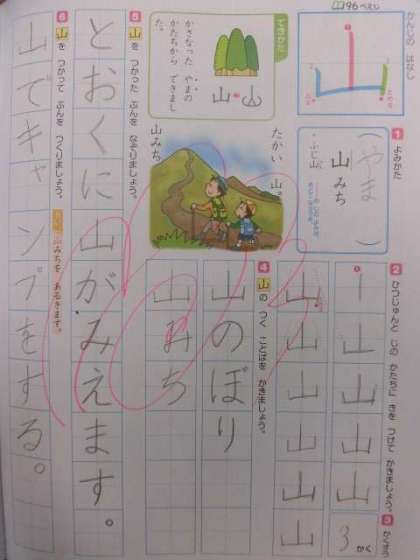 96ページ
かんじの はなし
1 よみかた
(やま)
山みち
・ふじ山
2 ひつじゅんと じの かたちに きを つけて かきましょう。
山
山
山
山
山
山
山
山
山
3 かくすう
3かく
できかた
かさなった やまの かたちから できました。
山
たかい 山。
山みち
4 山の つく ことばを かきましょう。
山のぼり
山みち
5 山を つかった ぶんを なぞりましょう。
とおくに山がみえます。
6 山を つかって ぶんを つくりましょう。
みちを あるきます。
山でキャンプをする。